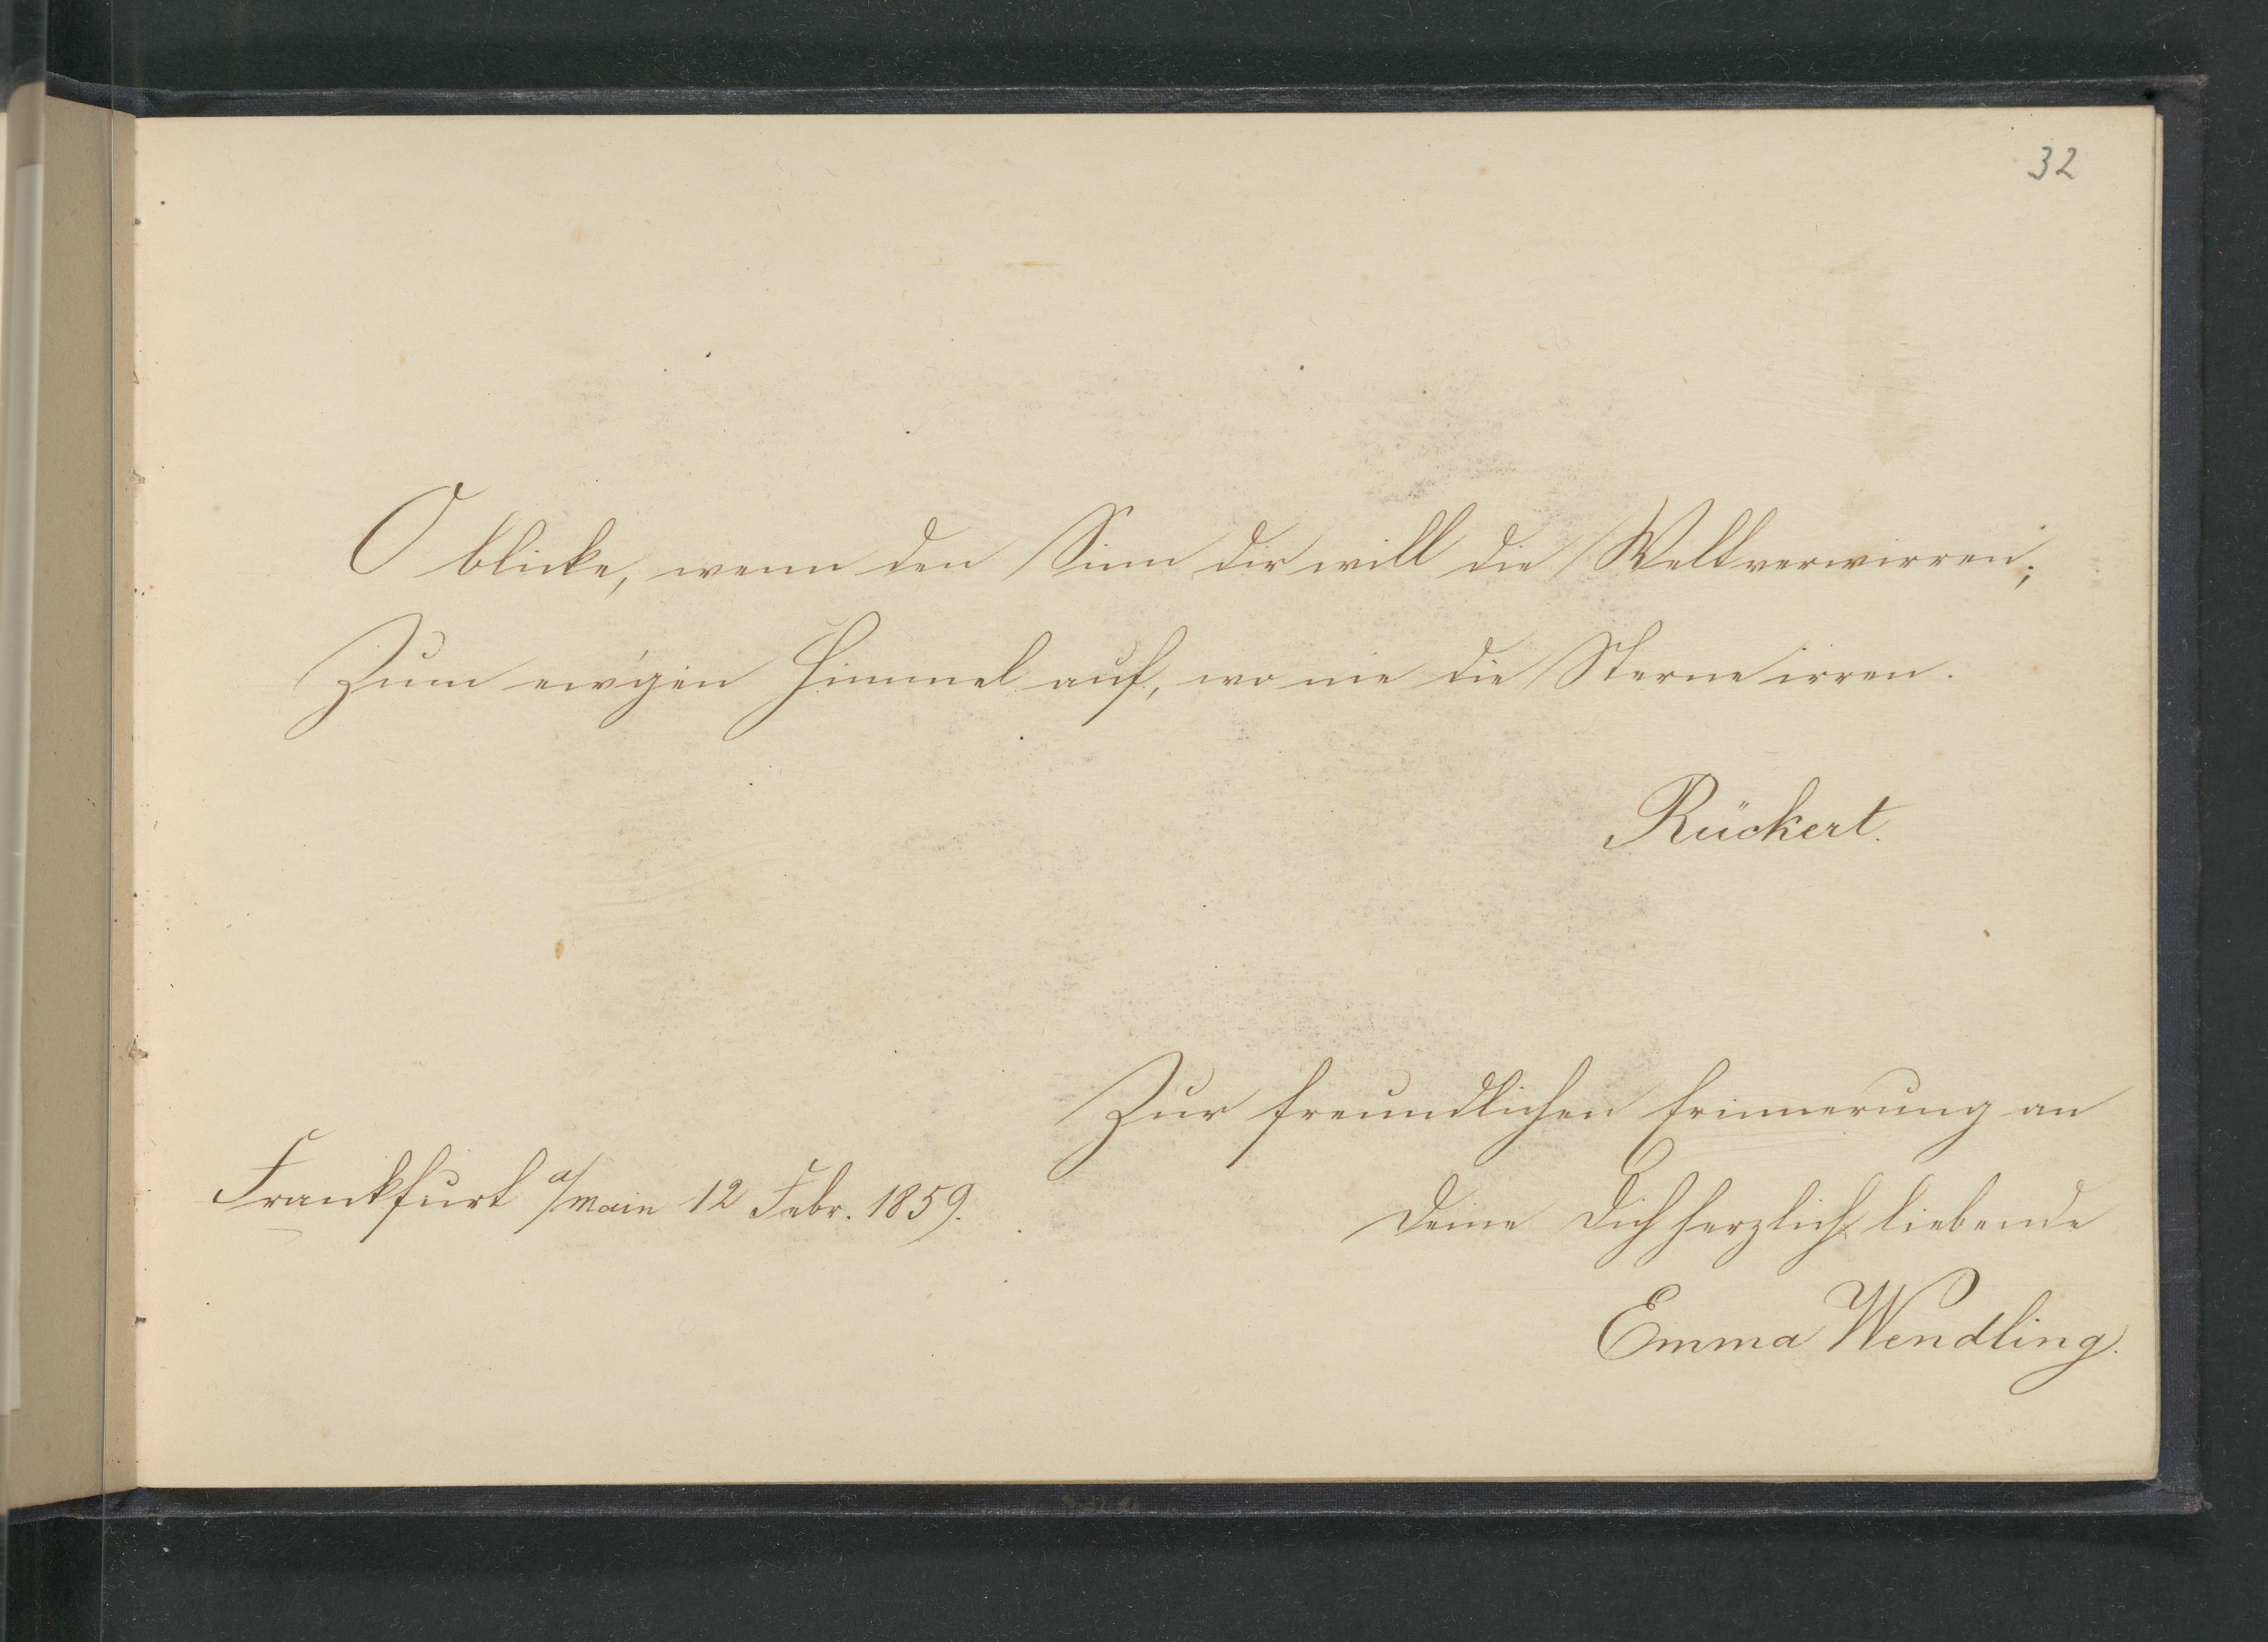 32
O blicke, wenn den Sinn dir will die Welt verwirren;
Zum ew'gen Himmel auf, wo nie die Sterne irren.
Rückert.
Zur freundlichen Erinnerung an
Frankfurt a/Main 12 Febr. 1859.
Deine Dich herzlich liebende
Emma Wendling.